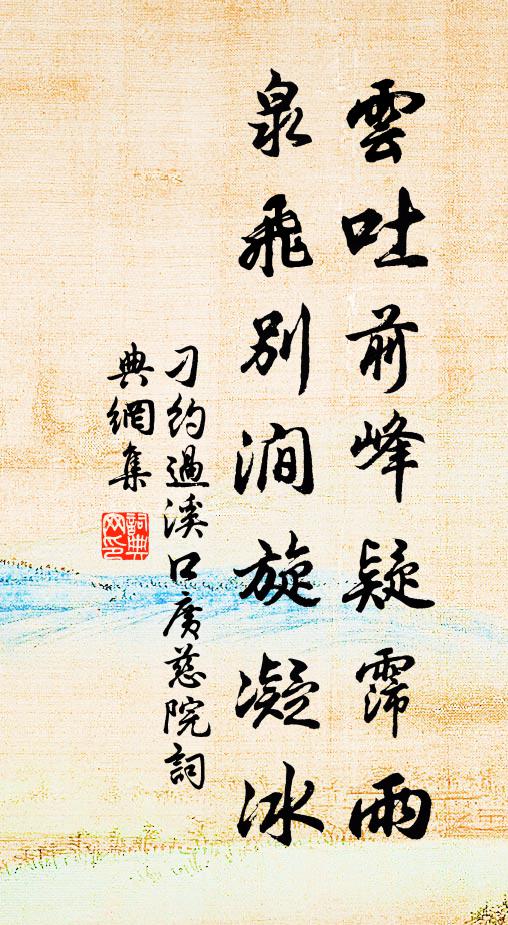 雲吐前峰疑霈雨
泉飛別澗旋凝冰
刁約過溪口廣慈院詞
典網集
詞典
网印